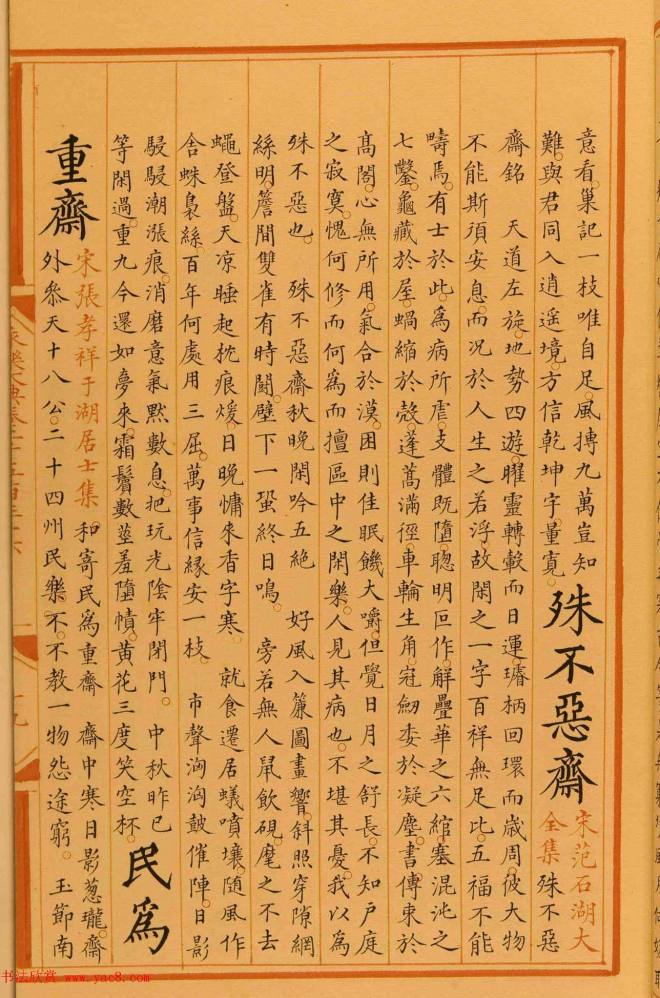 意看。巢記一枝唯自足。風搏九萬豈知
難。與君同入逍遙境。方信乾坤字量寬。
殊不惡齋
宋范石湖大
全集 殊不惡
齋銘 天道左旋。地勢四遊。曜靈轉轂而日運。璿柄回環而歲周。彼大物
不能斯須安息。而况於人生之若浮。故閑之一字百祥無足比。五福不能
疇焉。有士於此。為病所虐。支體既隳。聰明叵作。解疊華之六綰。塞混沌之
七鑿。龜藏於屋。蝸縮於殼。蓬蒿滿徑。車輪生角。冠劒委於凝塵。書傳束於
髙閣。心無所用。氣合於漠。困則佳眠。饑大嚼。但覺日月之舒長。不知户庭
之寂寞。愧何修而何為。而擅區中之閑樂。人見其病也。不堪其憂。我以為
殊不惡也。 殊不惡齋秋晚閑吟五絶 好風入簾圖畫響。斜照穿隙網
絲明。簷間雙雀有時鬬。壁下一蛩終日鳴。 旁若無人鼠飲硯。麾之不去
蠅登盤。天凉睡起枕痕煖。日晚慵來香字寒。 就食遷居蟻噴壤。隨風作
舍蛛裊絲。百年何處用三屈。萬事信緣安一枝。 市聲洶洶皷催陣。日影
駸駸潮漲痕。消磨意氣黙數息。把玩光陰牢閉門。 中秋昨已
等閑過。重九今還如夢來。霜鬢數莖羞墮幘。黄花三度笑空杯。
民為
重齋
宋張孝祥于湖居士集 和寄民為重齋 齋中寒日影葱瓏。齋
外叅天十八公。二十四州民樂不。不教一物怨途窮。 玉節南
书法欣赏 www.yac8.com